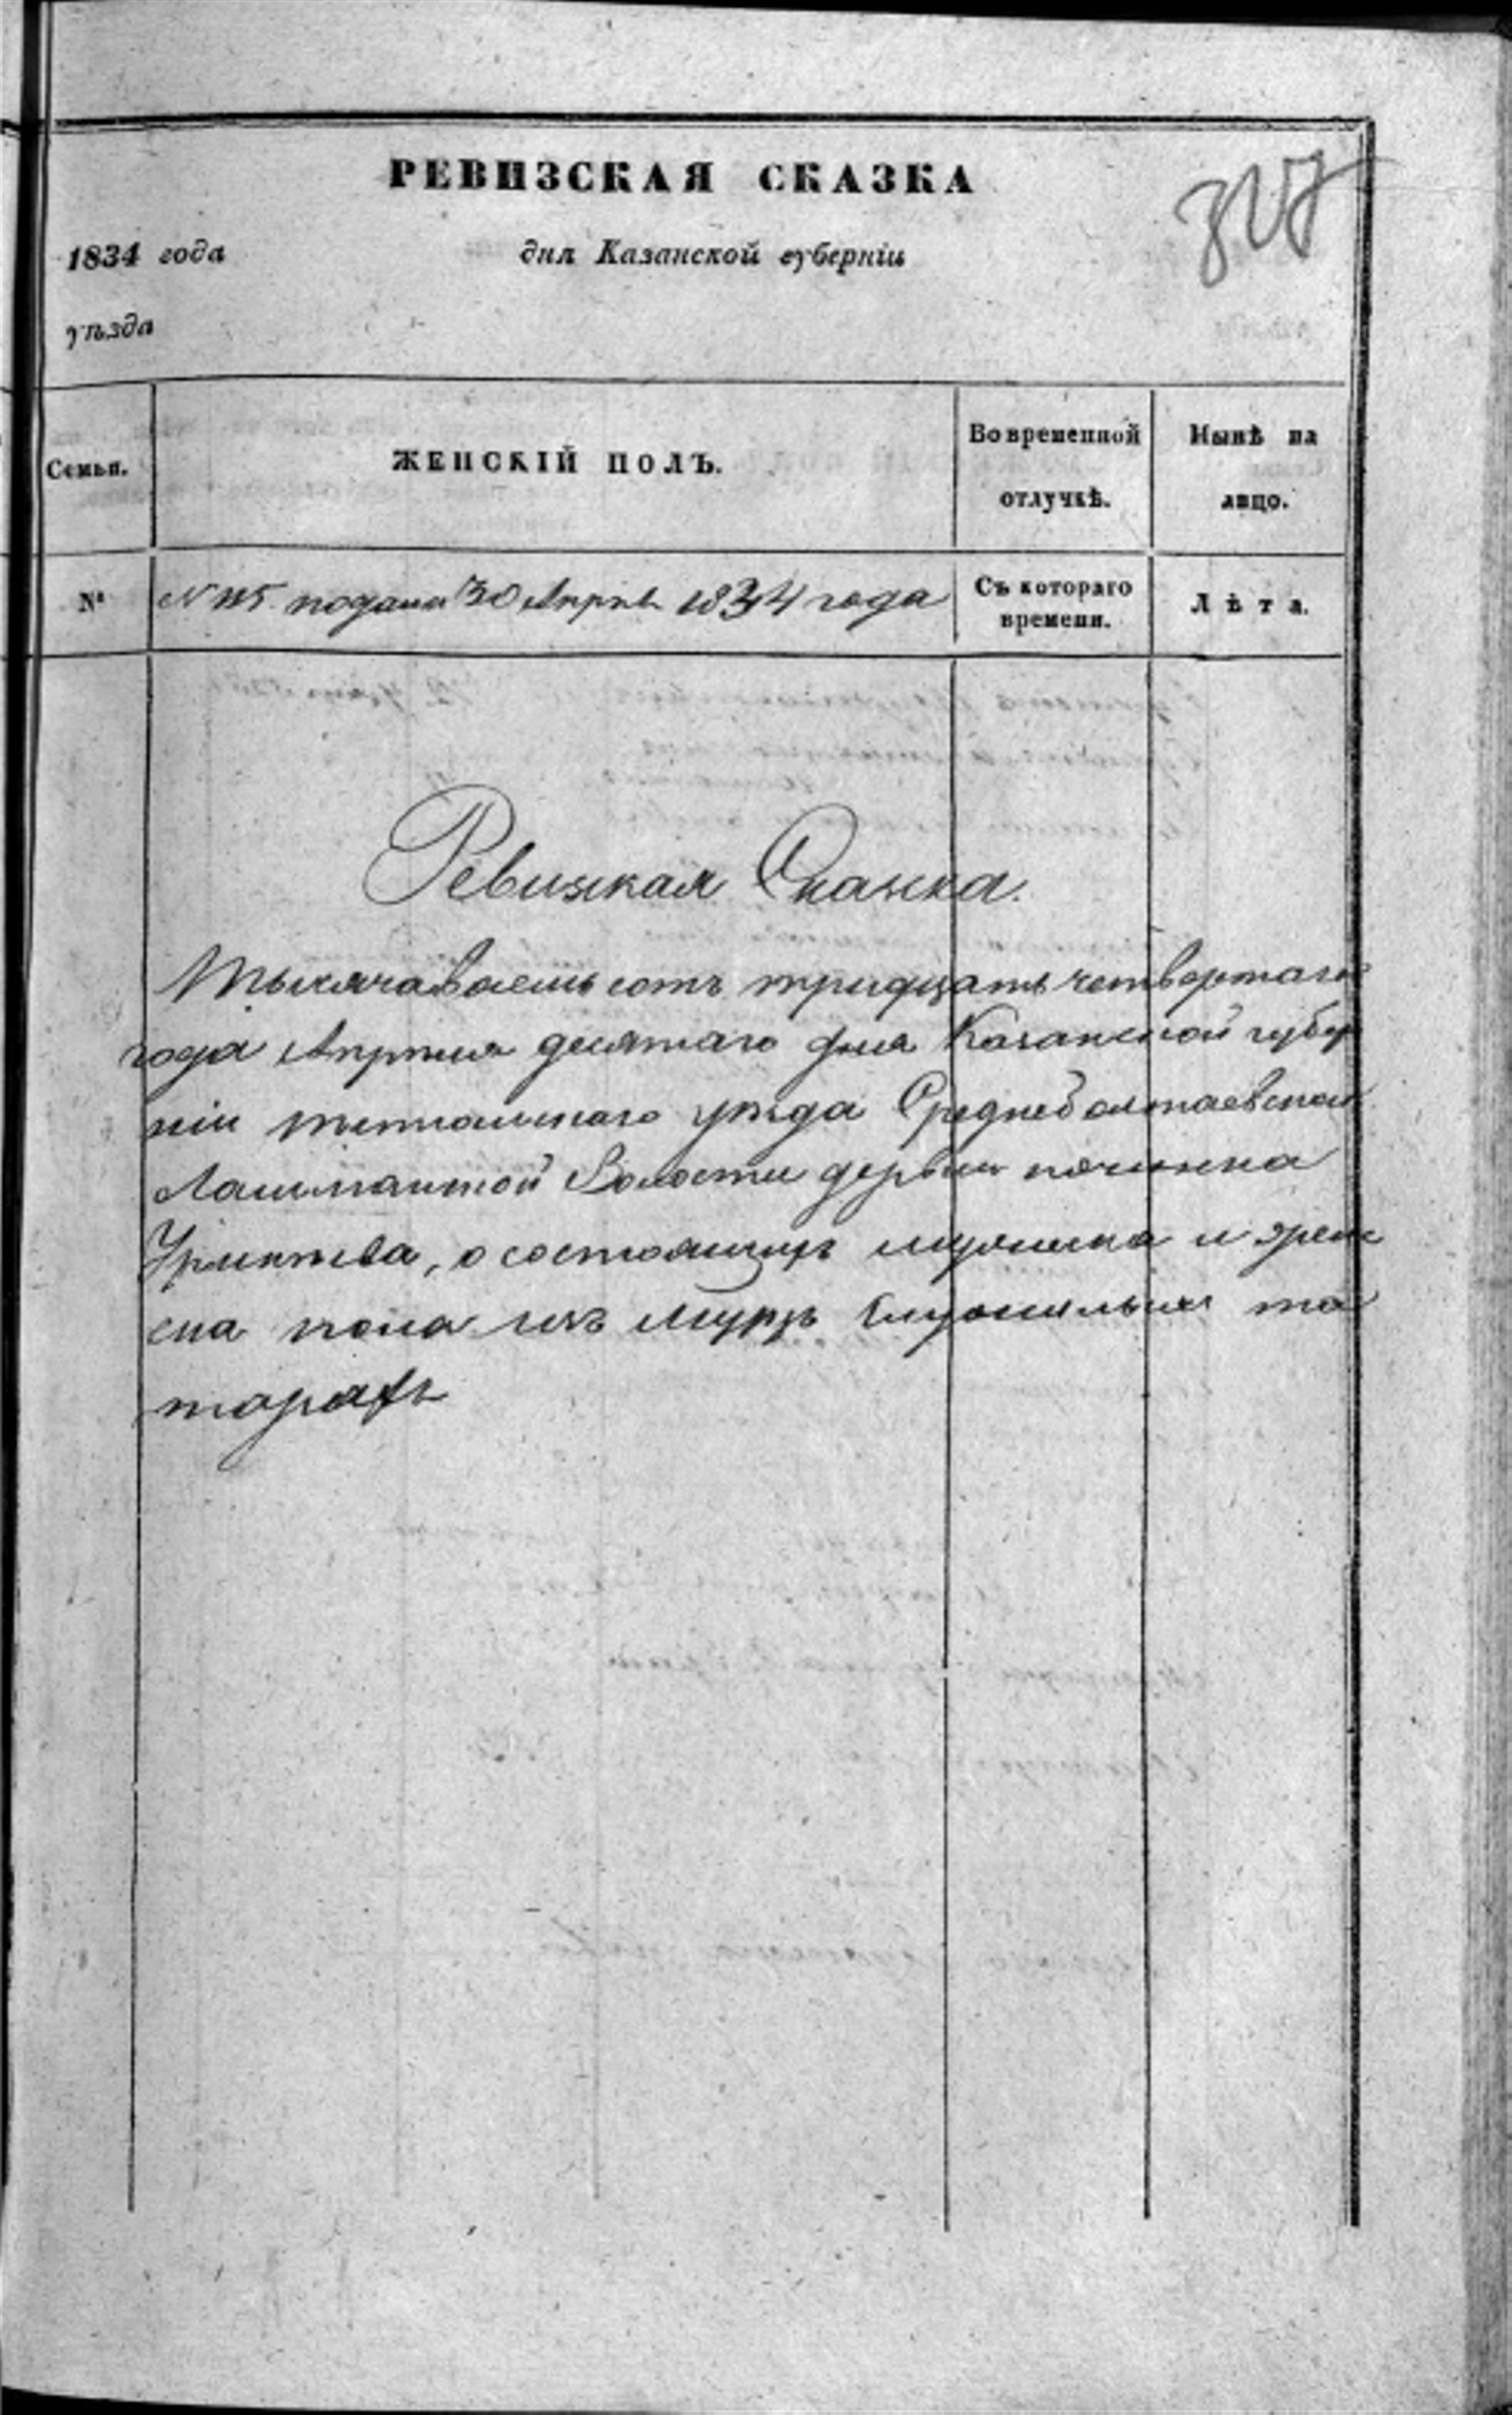 РЕВИЗСКАЯ СКАЗКА
1834 года дня Казанской губернiи
уѣзда
Семьи.
ЖЕНСКIЙ ПОЛЪ.
Во временной отлучкѣ.
Нынѣ на лицо.
№
подана 30 Апрѣл 1834 года
Съ котораго времени.
Лѣта.
Ревизская Сказка.
Тысяча восемь сотъ тридцать четвертаго
года Апрѣля десятаго дня Казанской губер
нiи тетюшскаго уѣзда
Лашманской Волости дервни починка
о состоящихъ мужеска и женс
ска пола изъ Мурзъ служилыхъ та
таръ